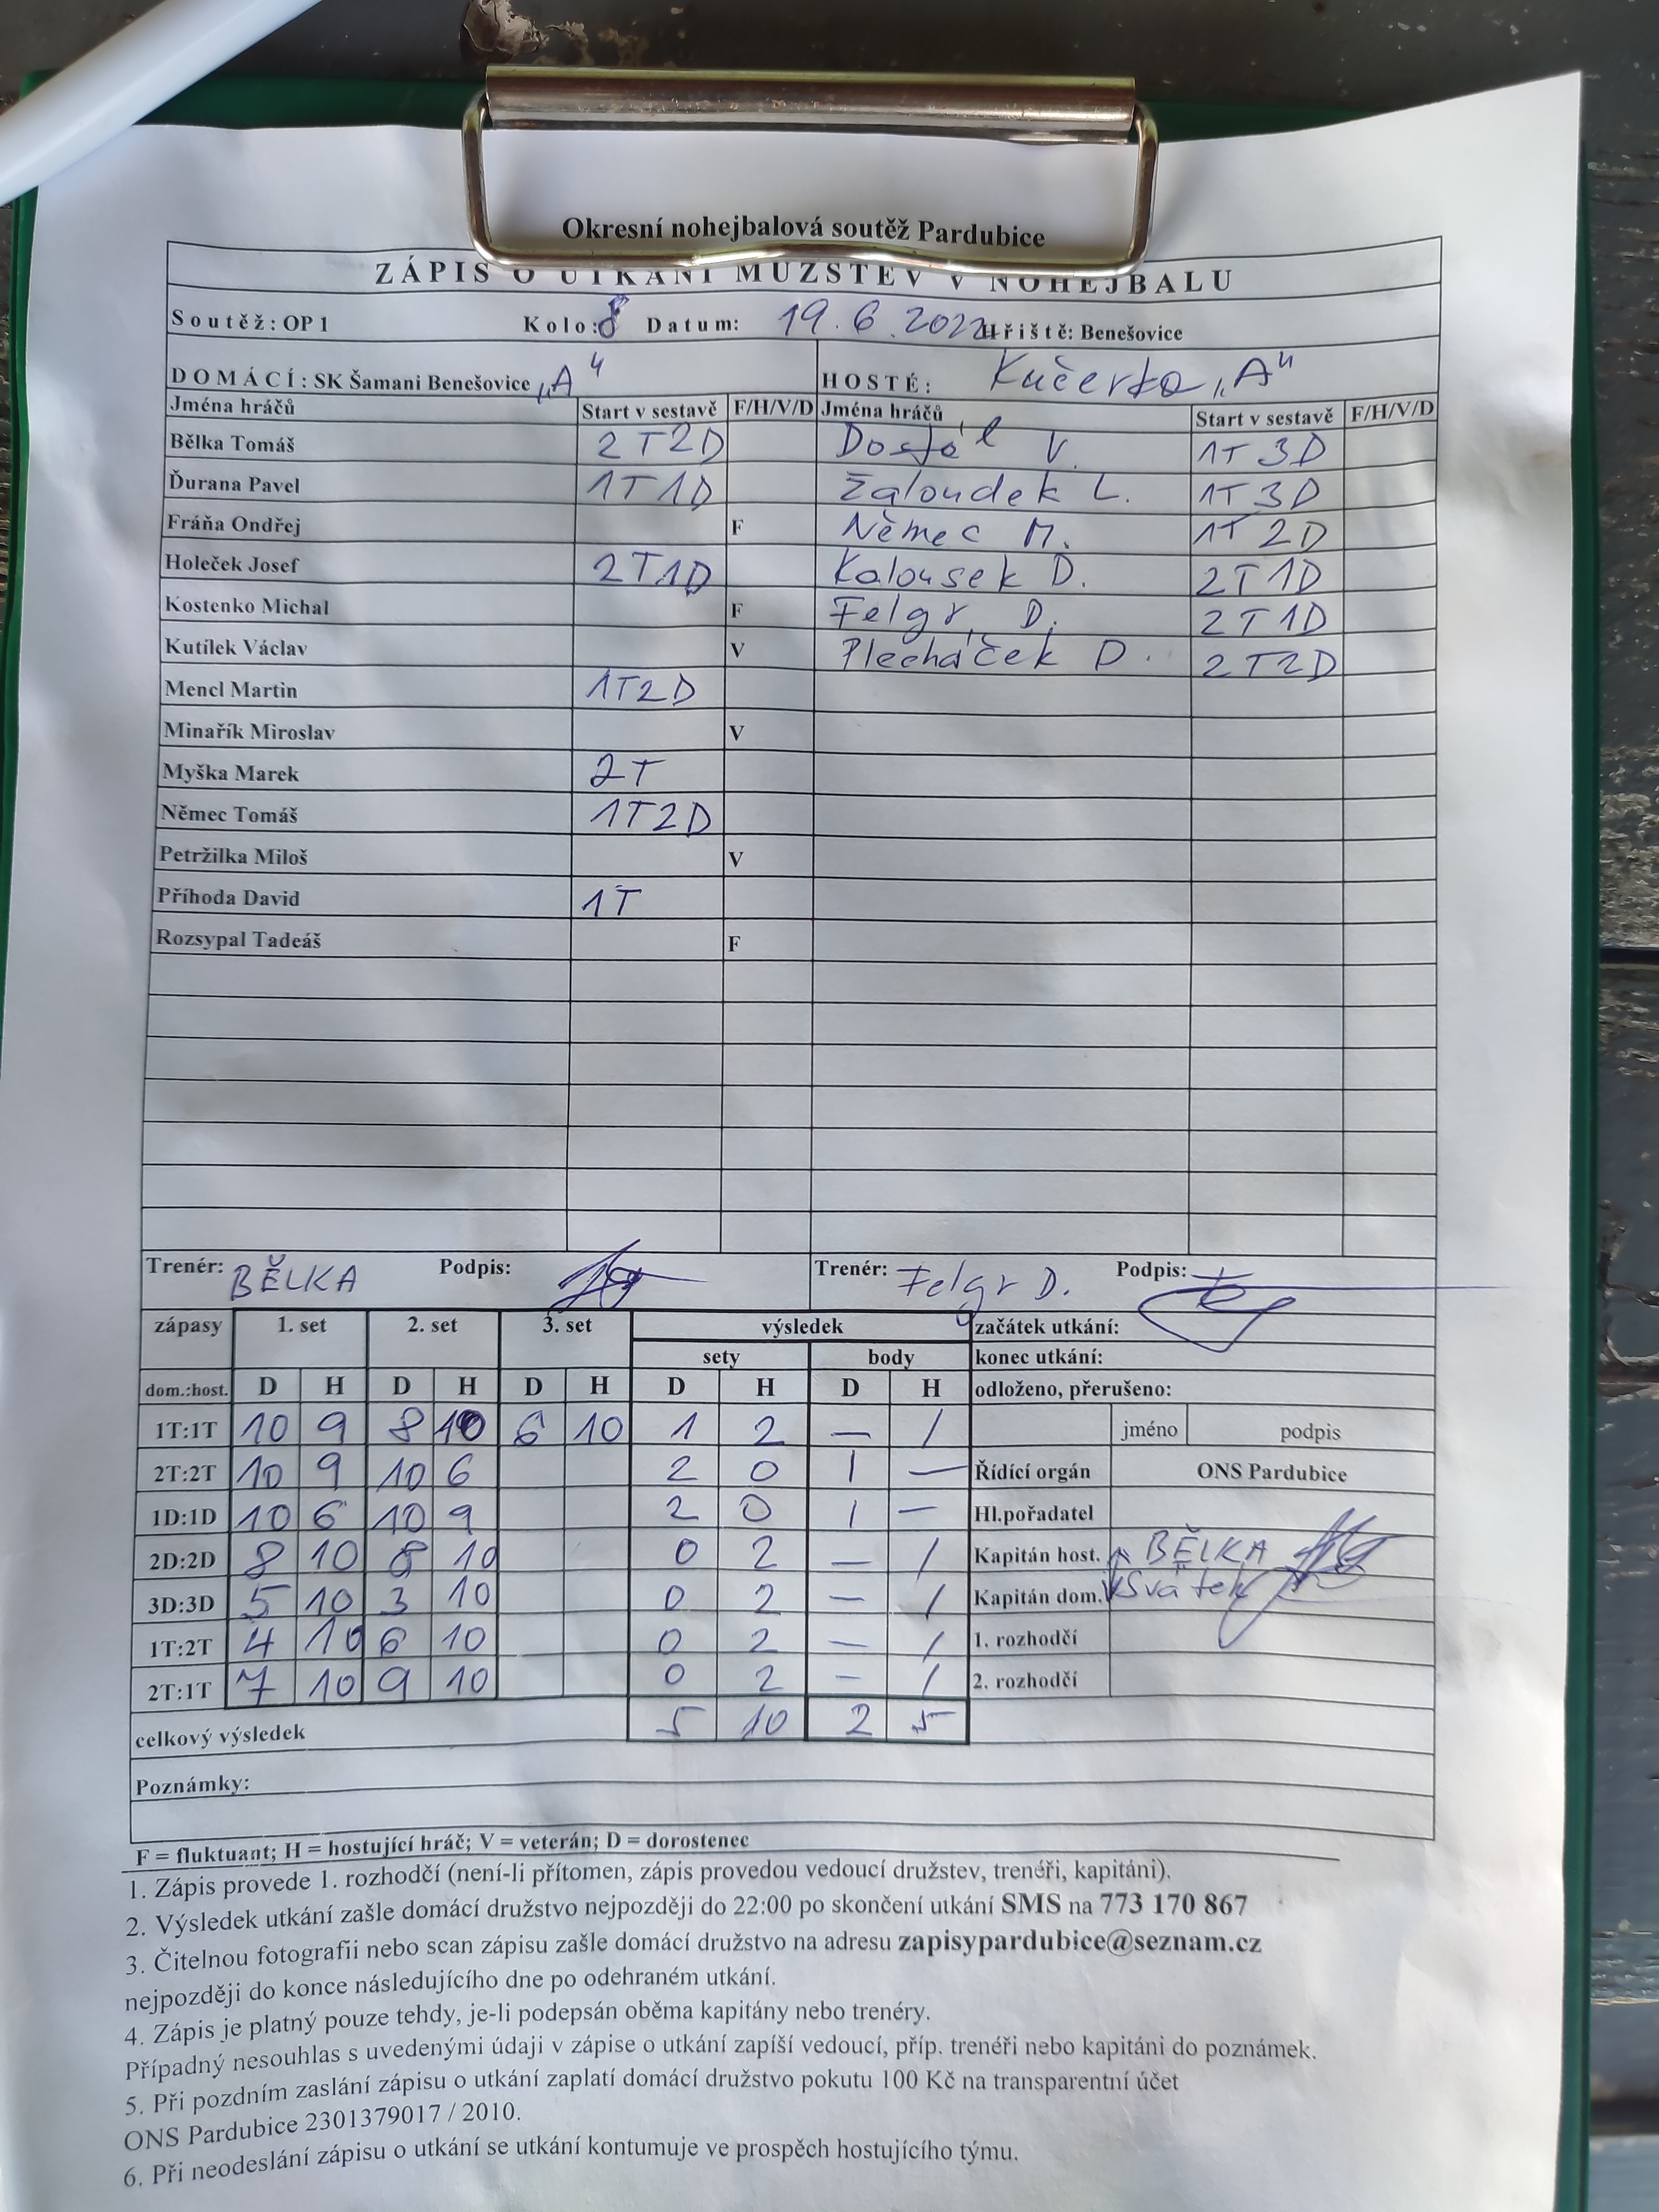 Okresní nohejbalová soutěž Pardubice
ZÁPIS O UTKÁNÍ MUŽSTEV V NOHEJBALU
Soutěž: OP 1 Kolo: 8 Datum: 19.6.2022 Hřiště: Benešovice
DOMÁCÍ: SK Šamani Benešovice „A" HOSTÉ: Kučerka „A"
Jména hráčů Start v sestavě F/H/V/D Jména hráčů Start v sestavě F/H/V/D
Bělka Tomáš 2T2D Dostál V. 1T3D
Ďurana Pavel 1T1D Žaloudek L. 1T3D
Fráňa Ondřej F Němec M. 1T2D
Holeček Josef 2T1D Kalousek D. 2T1D
Kostenko Michal F Felgr D. 2T1D
Kutílek Václav V Plecháček D. 2T2D
Mencl Martin 1T2D
Minařík Miroslav V
Myška Marek 2T
Němec Tomáš 1T2D
Petržilka Miloš V
Příhoda David 1T
Rozsypal Tadeáš F
Trenér: BĚLKA Podpis: Trenér: Felgr D. Podpis:
zápasy 1. set 2. set 3. set výsledek začátek utkání:
sety body konec utkání:
dom.:host. D H D H D H D H D H odloženo, přerušeno:
1T:1T 10 9 8 10 6 10 1 2 — / jméno podpis
2T:2T 10 9 10 6 2 0 1 — Řídící orgán ONS Pardubice
1D:1D 10 6 10 9 2 0 1 — Hl.pořadatel
2D:2D 8 10 8 10 0 2 — / Kapitán host. BĚLKA
3D:3D 5 10 3 10 0 2 — / Kapitán dom. Svátek
1T:2T 4 10 6 10 0 2 — / 1. rozhodčí
2T:1T 7 10 9 10 0 2 — / 2. rozhodčí
celkový výsledek 5 10 2 5
Poznámky:
F = fluktuant; H = hostující hráč; V = veterán; D = dorostenec
1. Zápis provede 1. rozhodčí (není-li přítomen, zápis provedou vedoucí družstev, trenéři, kapitáni).
2. Výsledek utkání zašle domácí družstvo nejpozději do 22:00 po skončení utkání SMS na 773 170 867
3. Čitelnou fotografii nebo scan zápisu zašle domácí družstvo na adresu zapisypardubice@seznam.cz
nejpozději do konce následujícího dne po odehraném utkání.
4. Zápis je platný pouze tehdy, je-li podepsán oběma kapitány nebo trenéry.
Případný nesouhlas s uvedenými údaji v zápise o utkání zapíší vedoucí, příp. trenéři nebo kapitáni do poznámek.
5. Při pozdním zaslání zápisu o utkání zaplatí domácí družstvo pokutu 100 Kč na transparentní účet
ONS Pardubice 2301379017 / 2010.
6. Při neodeslání zápisu o utkání se utkání kontumuje ve prospěch hostujícího týmu.